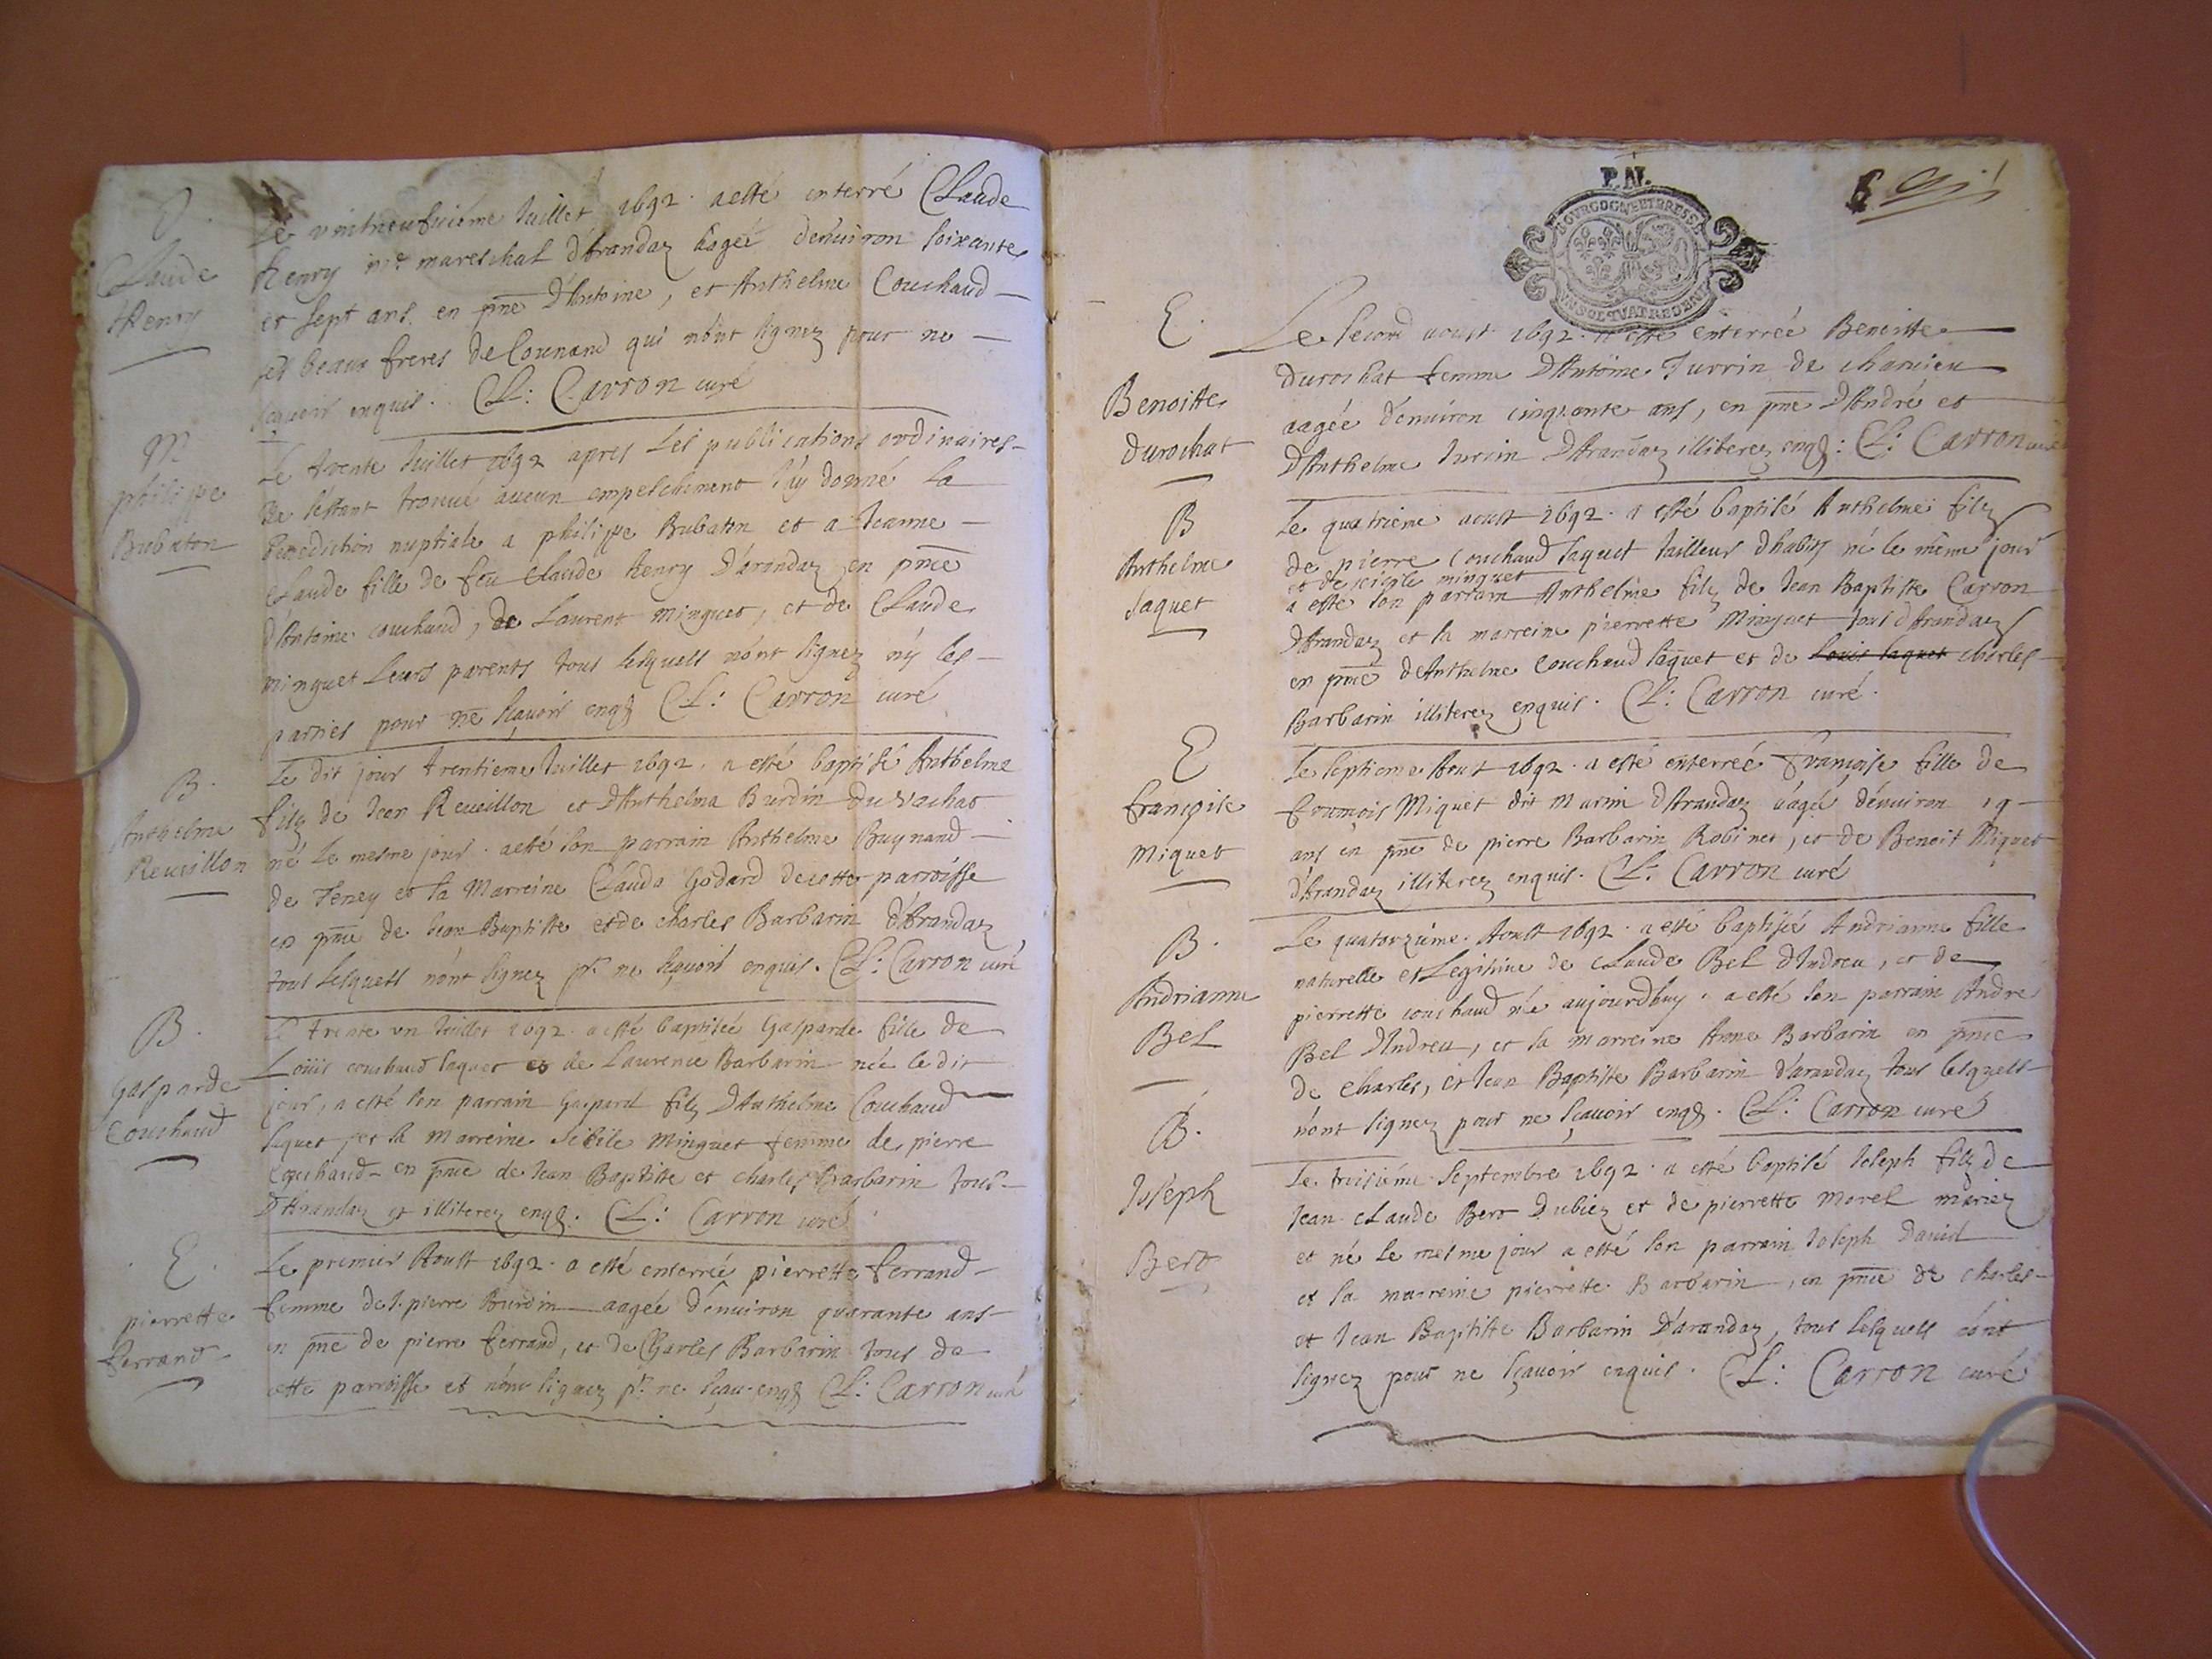 Claude
Henry
Le vintneufviéme Juillet 1692. a esté enterré Claude
Henry mre mareschal d'Arandaz aagée d'enuiron soixante
et sept ans. en pnce D'Antoine, et Anthelme Couchaud
ses beaux freres de Counand qui n'ont signez pour ne
sçavoir enquis. Cl: Carron curé
M
philippe
Bubaton
Le trente Juillet 1692 apres les publications ordinaires
Ne s'estant trouué aucun empeschement J'ay donné la
Benediction nuptiale a philippe Bubaton et a Jeanne
Claude fille de feu Claude henry D'arandaz en pnce
d'Antoine couchaud, de Laurent minguet, et de Claude
minguet Leurs parents tous lesquels n'ont signez n'y les
parties pour ne sçavoir enqs Cl: Carron curé
B.
Anthelme
Reueillon
Le dit jour trentieme Juillet 1692. a esté baptisé Anthelme
filz de Jean Reueillon et D'Anthelma Burdin du vachat
né le mesme jour. a esté son parrain Anthelme Buynand
de Teney et la Marreine Clauda Godard de cette parroisse
en pnce de Jean Baptiste et de charles Barbarin d'Arandaz
tous lesquels n'ont signez pr ne sçavoir enquis. Cl: Carron curé
B.
Gasparde
Couchaud
Le trente vn Juillet 1692. a esté baptiseé Gasparde fille de
Loüis couchaud Jaquet et de Laurence Barbarin née le dit
jour, a esté son parrain Gaspard filz D'Anthelme Couchaud
Jaquet, et la Marreine Sibile Minguet femme de pierre
Couchaud en pnce de Jean Baptiste et charles Barbarin tous
D'Arandaz et illiterez enqs. Cl: Carron curé
E.
pierrette
ferrand
Le premier Aoust 1692. a esté enterreé pierrette ferrand
femme de pierre Burdin aagée d'enuiron quarante ans
en pnce de pierre ferrand, et de Charles Barbarin tous de
cette parroisse et n'ont signez pr ne sçau. enqs Cl: Carron curé
P.N.
BOVRGOGNE ET BRESSE
VN SOL QVATRE DEN
6
E.
Benoitte
Durochat
Le second aoust 1692. a esté enterrée Benoitte
Durochat femme D'Antoine Jurrin de chanieu
aagée d'enuiron cinquante ans, en pnce D'André et
D'Anthelme Jurrin D'Arandaz illiterez enqs: Cl: Carron curé
B
Anthelme
Jaquet
Le quatrieme aoust 1692. a esté baptisé Anthelme filz
de pierre Couchaud Jaquet tailleur d'habits né le mème jour
et de Sicile minguet
a esté son parrain Anthelme filz de Jean Baptiste Carron
D'Arandaz et la marreine pierrette Minguet tous d'Arandaz
en pnce d'Anthelme Couchaud Jaquet et de Louis Jaquet charles
Barbarin illiterez enquis. Cl: Carron curé.
E
françoise
Miquet
Le septieme Aoust 1692. a esté enterreé françoise fille de
françois Miquet dit Marin D'Arandaz aagée d'enuiron 19
ans en pnce de pierre Barbarin Robinet, et de Benoit Miquet
d'Arandaz illiterez enquis. Cl: Carron curé
B.
Andrianne
Bel
Le quatorzieme Aoust 1692. a esté baptiseé Andrianne fille
naturelle et Legitime de Claude Bel D'Indreu, et de
pierrette couchaud née aujourdhuy. a esté son parrain André
Bel D'Indreu, et la marreine Anne Barbarin en pnce
de Charles, et Jean Baptiste Barbarin d'arandaz tous lesquels
n'ont signez pour ne sçavoir enqs. Cl: Carron curé
B.
Joseph
Bert
Le troisiéme Septembre 1692. a esté baptisé Joseph filz de
Jean Claude Bert Dubiez et de pierrette Morel mariez
et né le mesme jour a esté son parrain Joseph David
et la marreine pierrette Barbarin, en pnce de charles
et Jean Baptiste Barbarin D'arandaz, tous lesquels n'ont
signez pour ne sçavoir enquis. Cl: Carron curé